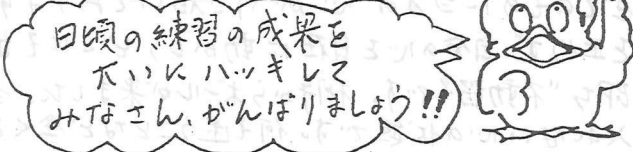 日頃の練習の成果を
大いにハッキして
みなさん、がんばりましょう!!
3